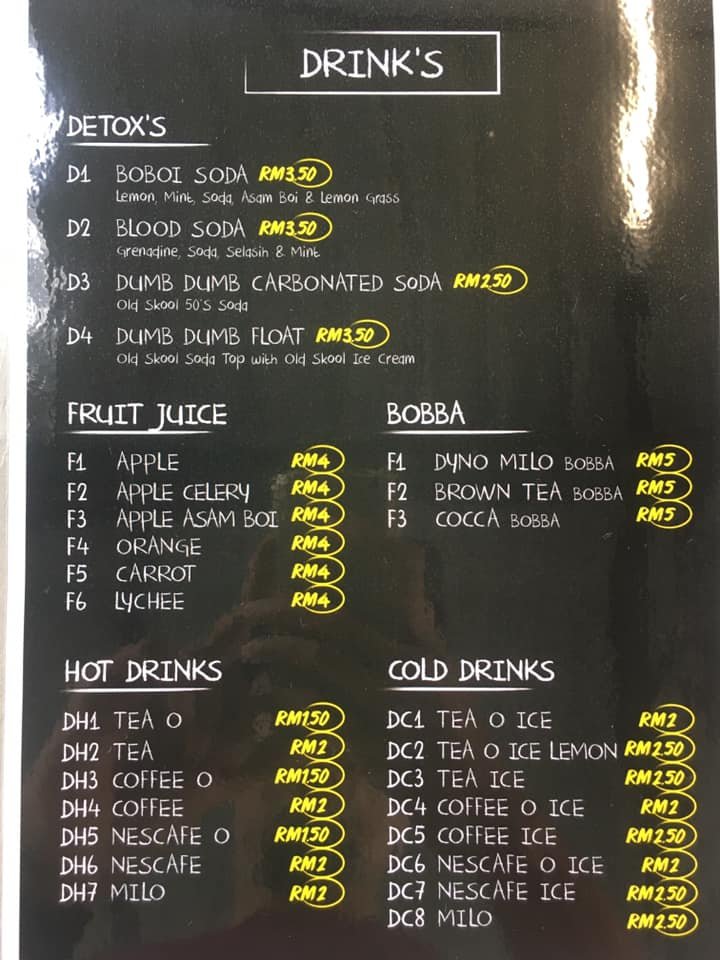 DRINK'S
DETOX'S
D1 BOBOI SODA RM3.50
Lemon, Mint, Soda, Asam Boi & Lemon Grass
D2 BLOOD SODA RM3.50
Grenadine, Soda, Selasih & Mint
D3 DUMB DUMB CARBONATED SODA RM2.50
Old Skool 50'S Soda
D4 DUMB DUMB FLOAT RM3.50
Old Skool Soda Top with Old Skool Ice Cream
FRUIT JUICE
F1 APPLE RM4
F2 APPLE CELERY RM4
F3 APPLE ASAM BOI RM4
F4 ORANGE RM4
F5 CARROT RM4
F6 LYCHEE RM4
BOBBA
F1 DYNO MILO BOBBA RM5
F2 BROWN TEA BOBBA RM5
F3 COCCA BOBBA RM5
HOT DRINKS
DH1 TEA O RM1.50
DH2 TEA RM2
DH3 COFFEE O RM1.50
DH4 COFFEE RM2
DH5 NESCAFE O RM1.50
DH6 NESCAFE RM2
DH7 MILO RM2
COLD DRINKS
DC1 TEA O ICE RM2
DC2 TEA O ICE LEMON RM2.50
DC3 TEA ICE RM2.50
DC4 COFFEE O ICE RM2
DC5 COFFEE ICE RM2.50
DC6 NESCAFE O ICE RM2
DC7 NESCAFE ICE RM2.50
DC8 MILO RM2.50